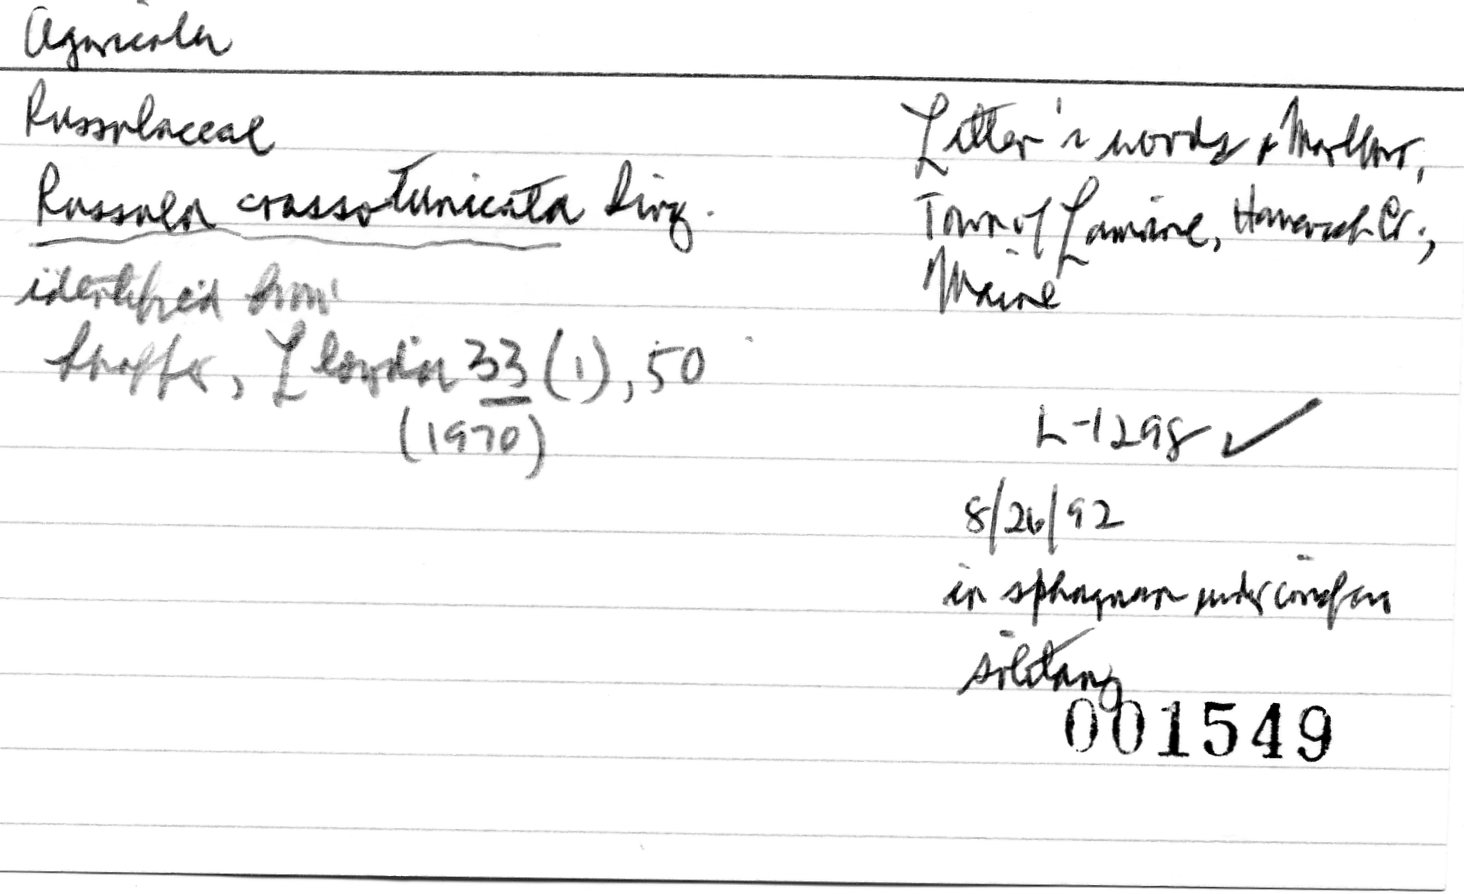 Agaricales
Russulaceae
Russula crassotunicata Sing.
identified from
Shaffer, Lloydia 33 (1), 50
(1970)
Litter's woods &
Town of Lamoine, Hancock Co.,
Maine
L-1298 ✓
8/26/92
in sphagnum under conifers
solitary
001549